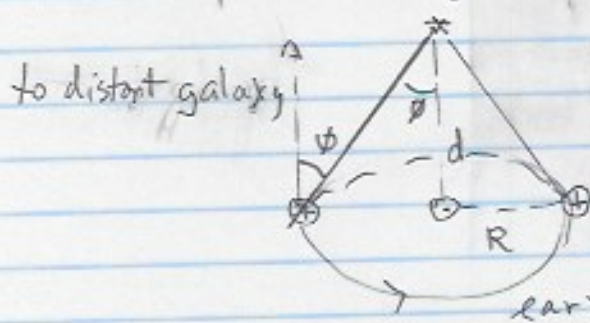 to distant galaxy
ψ
φ
d
R
ear